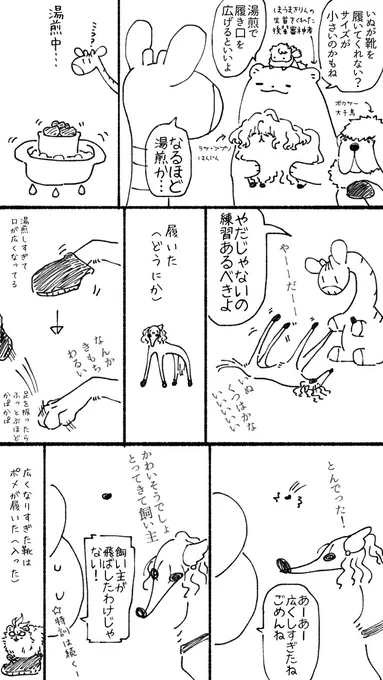 いぬが靴を
履いてくれない？
サイズが
小さいのかもね
しまうまきりんの
生首でくわえた
授業審神者
湯煎で
履き口を
広げるといいよ
ボクサー
太子鳥
ラフ・コリー
はんじん
なるほど
湯煎か…
湯煎中…
やだじゃないの
練習あるべきよ
やーーだーー
いぬ
くつはかな
いいいいい
履いた
（どうにか）
湯煎しすぎて
口が広くなってる
なんか
きもち
わるい
足を振ったら
ふっとぶほど
かぽかぽ
とんでった！
あーあー
広くしすぎたね
ごめんね
かわいそうでしょ
とってきて飼い主
飼い主が
飛ばしたわけじゃ
ない！
☆特訓は続くー
広くなりすぎた靴は
ポメが履いた（入った）